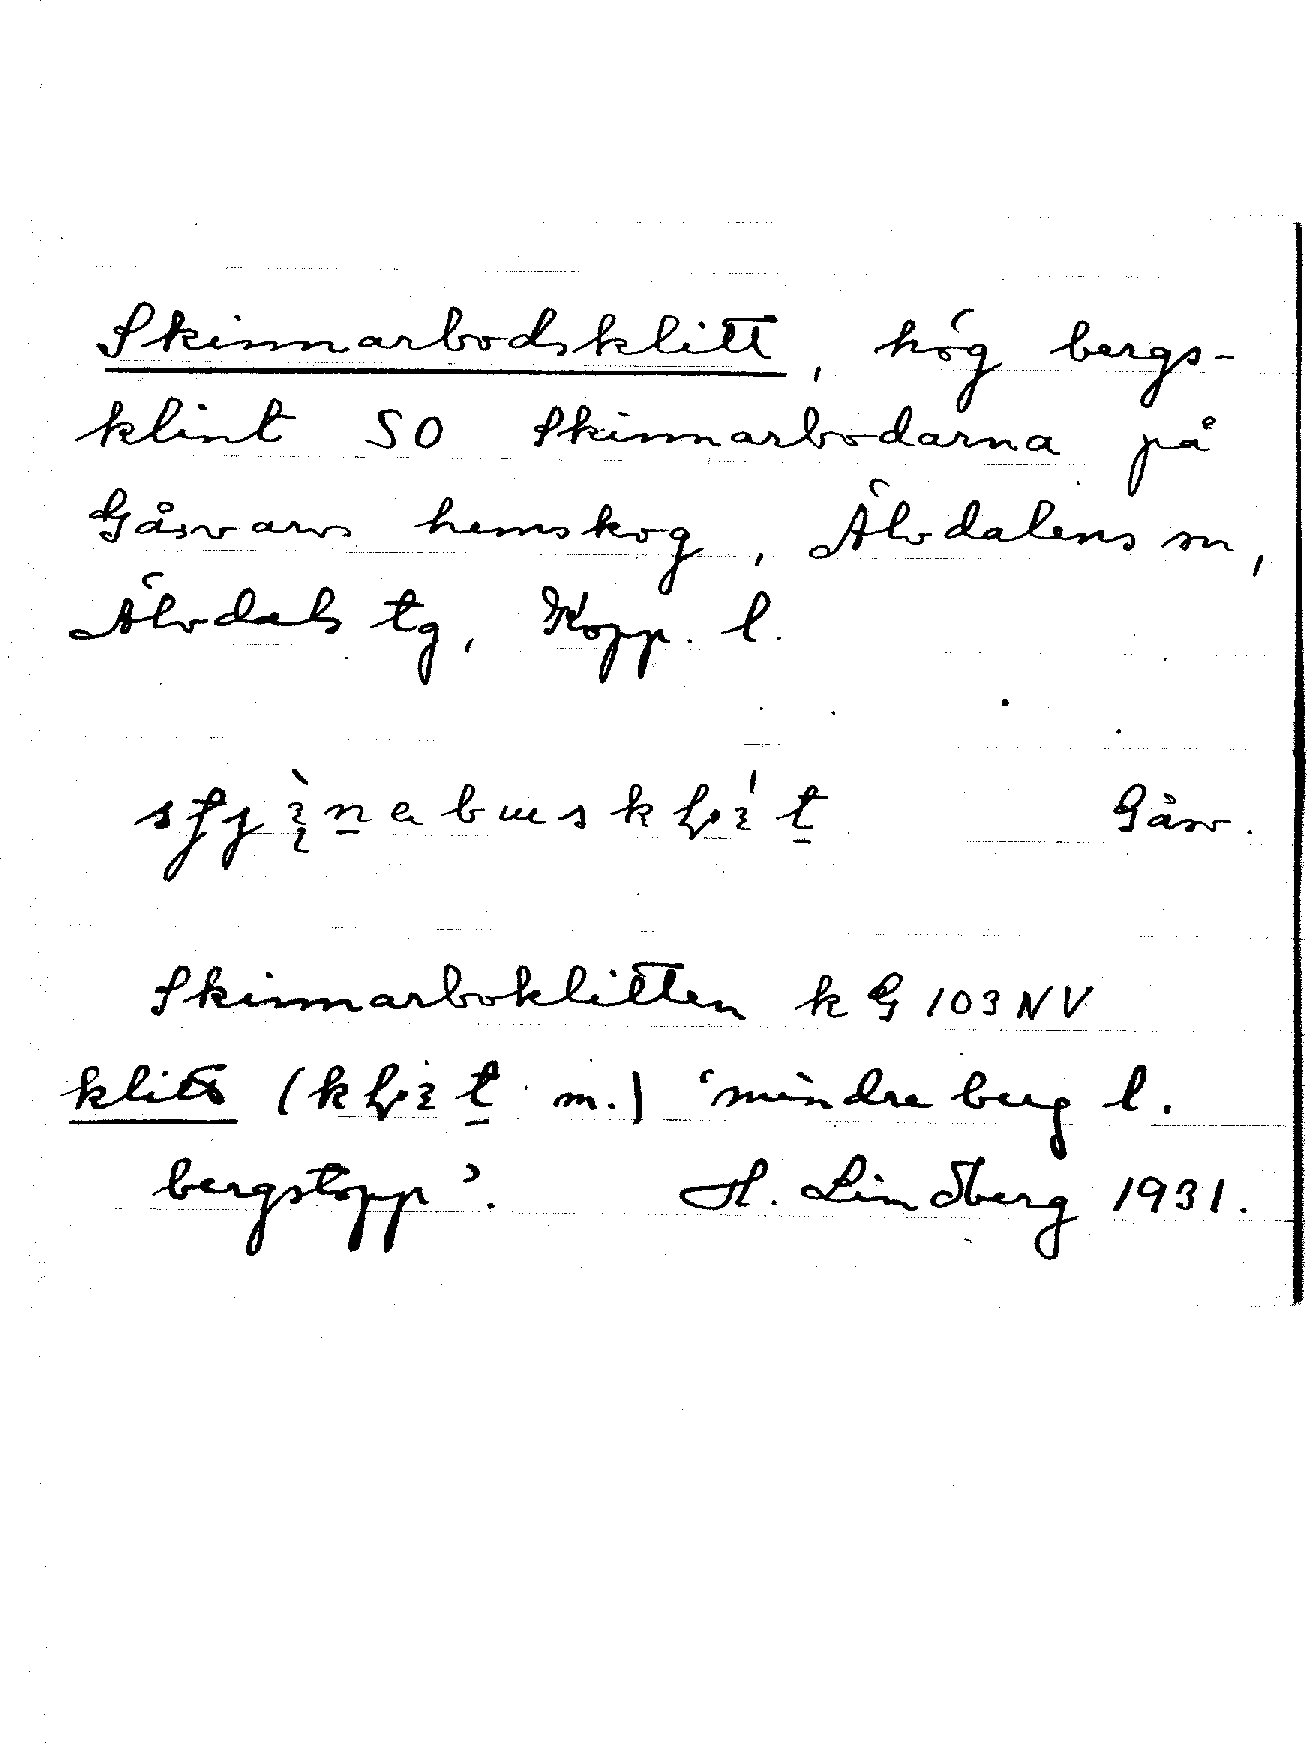 Skinnarbodsklitt, hög bergs-
klint SO Skinnarbodarna på
Gåsvarvs hemskog, Älvdalens sn,
Älvdals tg, Kopp. l.
Gåsv.
Skinnarboklitten k G 103 NV
klitt ( m.) 'mindre berg l.
bergstopp'. H. Lindberg 1931.